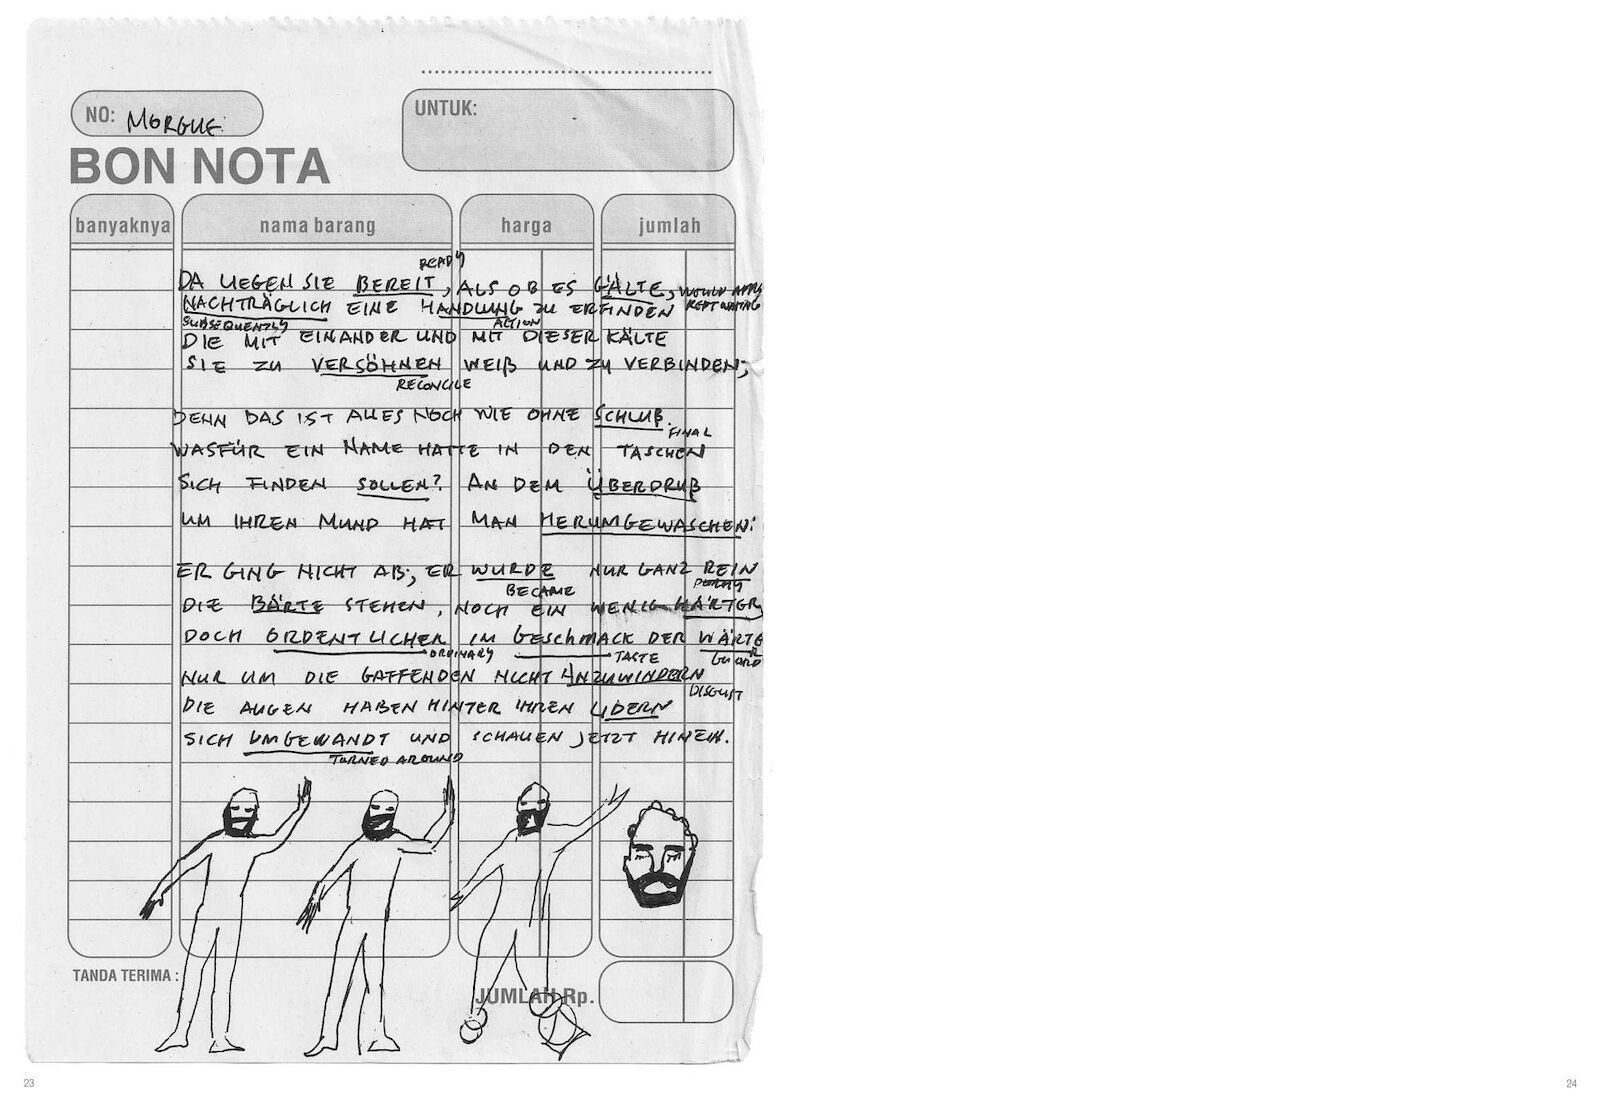 NO: MORGUE
UNTUK:
BON NOTA
banyaknya nama barang harga jumlah
READY
DA LIEGEN SIE BEREIT, ALS OB ES GÄLTE,
WOULD APPLY
NACHTRÄGLICH EINE HANDLUNG ZU ERFINDEN
KEPT WAITING
SUBSEQUENTLY ACTION
DIE MIT EINANDER UND MIT DIESER KÄLTE
SIE ZU VERSÖHNEN WEIß UND ZU VERBINDEN;
RECONCILE
DENN DAS IST ALLES NOCH WIE OHNE SCHLUß.
FINAL
WASFÜR EIN NAME HATTE IN DEN TASCHEN
SICH FINDEN SOLLEN? AN DEM ÜBERDRUß
UM IHREN MUND HAT MAN HERUMGEWASCHEN:
ER GING NICHT AB; ER WURDE NUR GANZ REIN
BECAME
DIE BÄRTE STEHEN, NOCH EIN WENIG HÄRTER
DOCH ORDENTLICHER IM GESCHMACK DER WÄRTER
ORDINARY TASTE GUARD
NUR UM DIE GAFFENDEN NICHT ANZUWIDERN
DISGUST
DIE AUGEN HABEN HINTER IHREN LIDERN
SICH UMGEWANDT UND SCHAUEN JETZT HINEIN.
TURNED AROUND
TANDA TERIMA :
JUMLAH Rp.
23
24